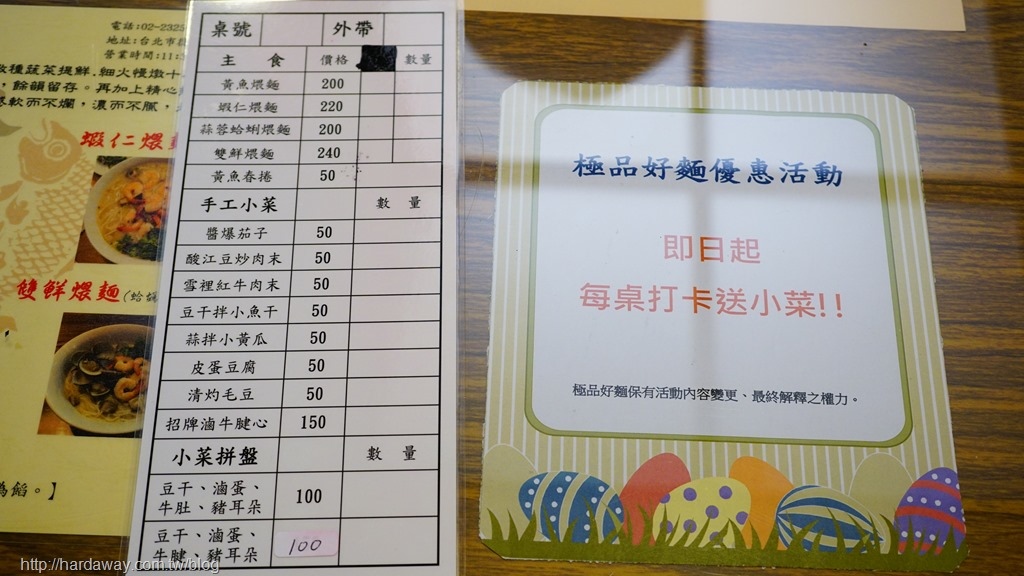 電話:02-2325
地址:台北市
營業時間:11:
種蔬菜提鮮.細火慢燉十
，餘韻留存。再加上精心
軟而不爛，濃而不膩，
蝦仁煨麵
雙鮮煨麵(蛤蜊
為餡。】
桌號 外帶
主 食 價格 數量
黃魚煨麵 200
蝦仁煨麵 220
蒜蓉蛤蜊煨麵 200
雙鮮煨麵 240
黃魚春捲 50
手工小菜 數 量
醬爆茄子 50
酸江豆炒肉末 50
雪裡紅牛肉末 50
豆干拌小魚干 50
蒜拌小黃瓜 50
皮蛋豆腐 50
清灼毛豆 50
招牌滷牛腱心 150
小菜拼盤 數 量
豆干、滷蛋、
牛肚、豬耳朵 100
豆干、滷蛋、
牛腱、豬耳朵 100
極品好麵優惠活動
即日起
每桌打卡送小菜!!
極品好麵保有活動內容變更、最終解釋之權力。
http://hardaway.com.tw/blog